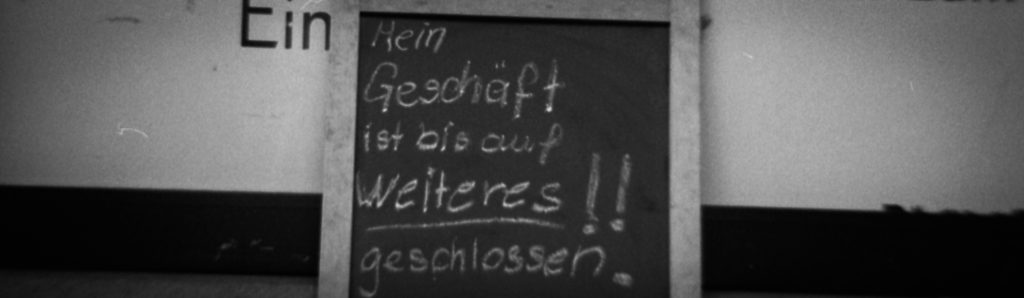 Ein
Mein
Geschäft
ist bis auf
Weiteres!!
geschlossen.